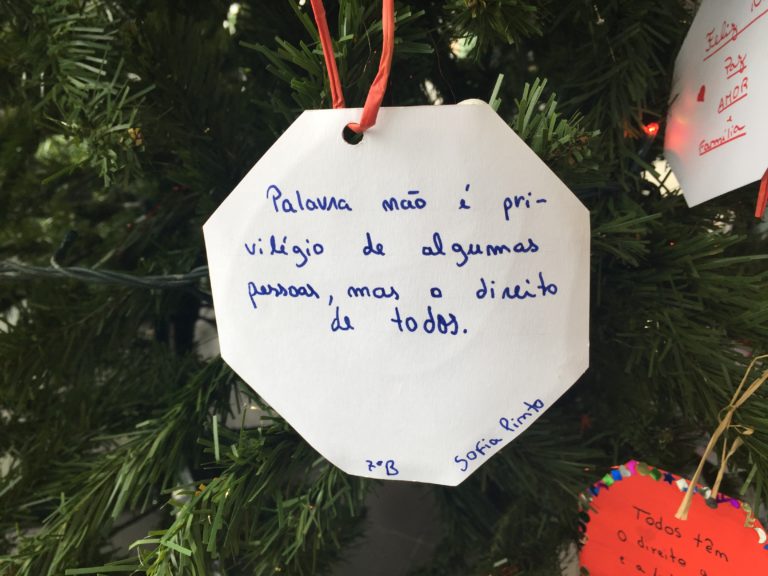 Palavra não é pri-
vilégio de algumas
pessoas, mas o direito
de todos.
7ºB
Sofia Pinto
Feliz
Paz
AMOR
e
Família
Todos têm
o direito
e a